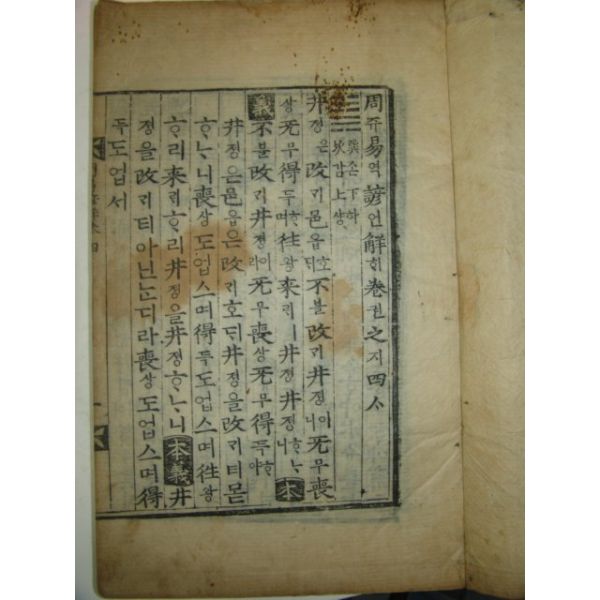 周쥬易역諺언解ᄒᆡ卷권之지四ᄉᆞ
巽손下하
坎감上샹
井졍은改ᄀᆡ邑읍호ᄃᆡ不불改ᄀᆡ井졍이니无무喪
상无무得득ᄒᆞ며往왕來ᄅᆡ井졍井졍ᄒᆞᄂᆞ니本
義不불改ᄀᆡ井졍이라无무喪상无무得득ᄒᆞ야
井졍은邑읍은改ᄀᆡ호ᄃᆡ井졍을改ᄀᆡ티몯
ᄒᆞᄂᆞ니喪상도업스며得득도업스며往왕
ᄒᆞ리來ᄅᆡᄒᆞ리井졍을井졍ᄒᆞᄂᆞ니本義井
졍을改ᄀᆡ티아닌ᄂᆞᆫ디라喪상도업스며得
득도업서